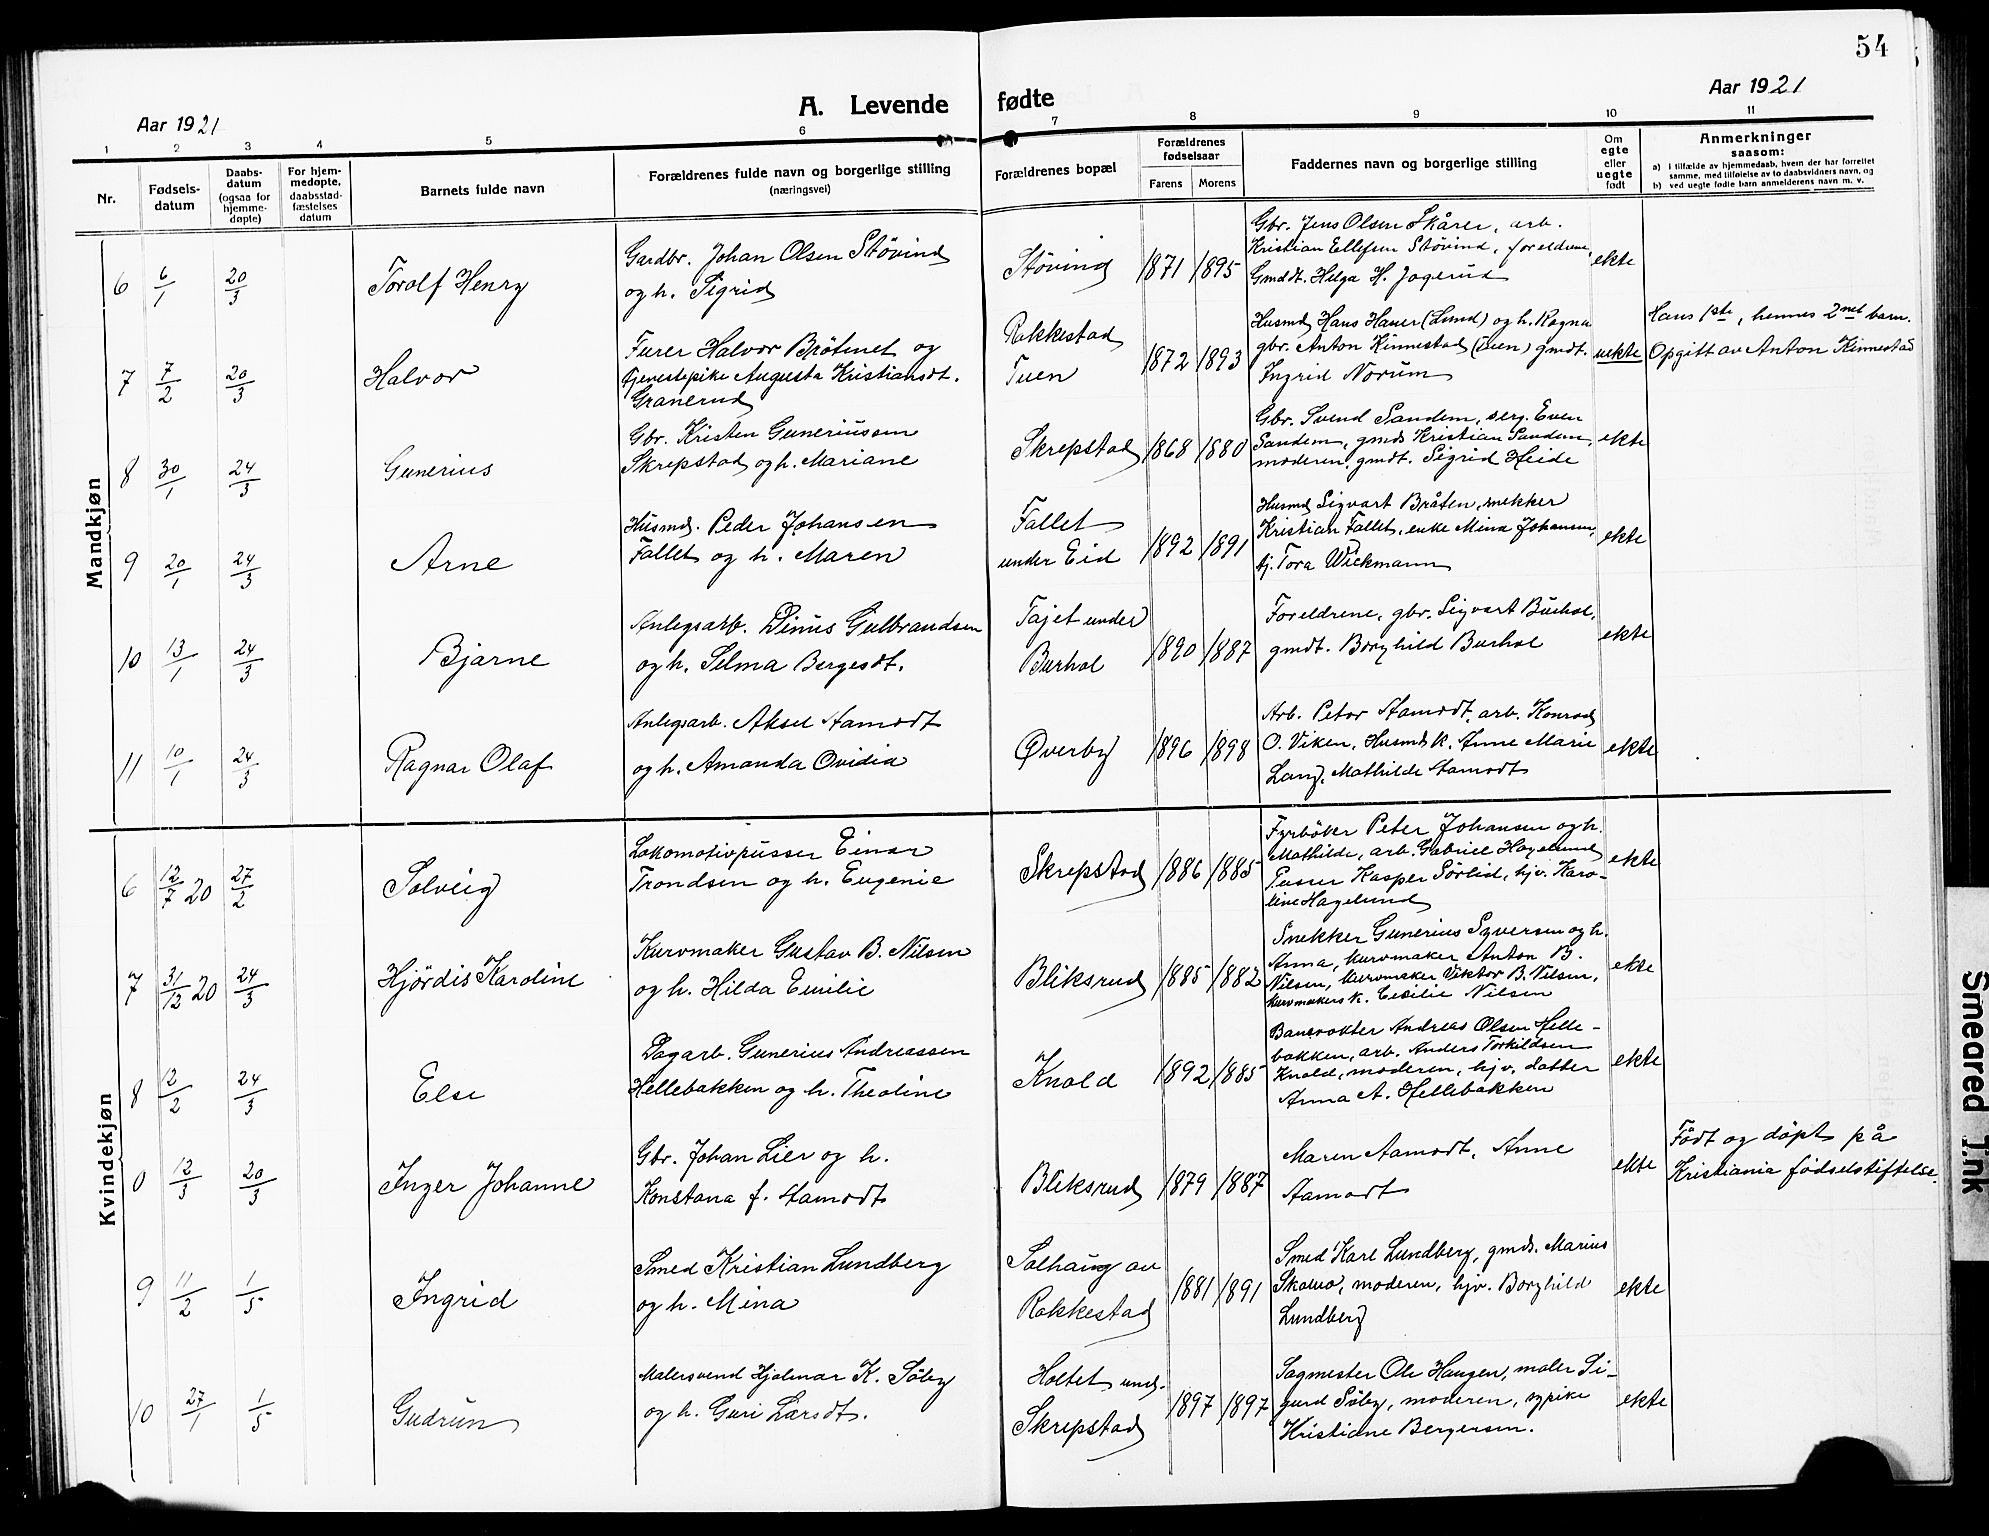 54
Aar 1921
A. Levende fødte
Aar 1921
1 2 3 4 5 6 7 8 9 10 11
Nr.
Fødsels-
datum
Daabs-
datum
(ogsaa for
hjemme-
døpte)
For hjem-
medøpte,
daabsstad-
fæstelses
datum
Barnets fulde navn
Forældrenes fulde navn og borgerlige stilling
(næringsvei)
Forældrenes bopæl
Forældrenes
fødselsaar
Farens Morens
Faddernes navn og borgerlige stilling
Om
egte
eller
uegte
født
Anmerkninger
saasom:
a) i tilfælde av hjemmedaab, hvem der har forrettet
samme, med tilføielse av to daabsvidners navn, og
b) ved uegte fødte barn anmelderens navn m. v.
Mandkjøn
6 6/1 20/3 Torolf Henry
Gardbr. Johan Olsen Stövind
og h. Sigrid
Stövind 1871 1895
Gbr. Jens Olsen Skårer, arb.
Kristian Ellefsen Stövind, foreldrene,
Gmdt. Helga H. Jogerud
ekte
7 7/2 20/3 Halvor
Furer Halvor Brötmet og
tjenestepike Augusta Kristiansdt.
Granerud
Rakkestad
Tuen
1872 1893
Husmd Hans Hauer (Lund) og h. Ragna
gbr. Anton Kinnestad (Tuen) gmdt.
Ingrid Norum
uekte
Hans 1ste, hennes 2net barn.
Opgitt av Anton Kinnestad
8 30/1 24/3 Gunerius
Gbr. Kristen Guneriussen
Skrepstad og h. Mariane
Skrepstad 1868 1880
Gbr. Svend Sandem, serg. Even
Sandem, gmd Kristian Sandem,
moderen, gmdt. Sigrid Heide
ekte
9 20/1 24/3 Arne
Husmd. Peder Johansen
Fallet og h. Maren
Fallet
under Eid
1892 1891
Husmd Sigvart Bråten, snekker
Kristian Fallet, enke Mina Johansen,
tj. Tora Wickmann
ekte
10 13/1 24/3 Bjarne
Anlegsarb. Dinus Gulbrandsen
og h. Selma Bergesdt.
Tajet under
Burhol
1890 1887
Foreldrene, gbr. Sigvart Burhol,
gmdt. Borghild Burhol
ekte
11 10/1 24/3 Ragnar Olaf
Anlegsarb. Aksel Aamodt
og h. Amanda Ovidia
Øverby 1896 1898
Arb. Petor Aamodt, arb. Konrad
O. Viken, Husmd k. Anne Marie
Lang, Mathilde Aamodt
ekte
Kvindekjøn
6 12/7 20 27/2 Solveig
Lokomotivpusser Einar
Trondsen og h. Eugenie
Skrepstad 1886 1885
Fyrböter Peter Johansen og h.
Mathilde, arb. Gabriel Hagelund
Pusser Kasper Sörlid, hjv. Karo-
line Hagelund
ekte
7 31/12 20 24/3 Hjördis Karoline
Kurvmaker Gustav B. Nilsen
og h. Hilda Emilie
Bliksrud 1885 1882
Snekker Gunerius Syversen og h.
Anna, kurvmaker Anton B.
Nilsen, kurvmaker Viktor B. Nilsen,
kurvmakers k. Cecilie Nilsen
ekte
8 12/2 24/3 Else
Dagarb. Gunerius Andreassen
Hellebakken og h. Theoline
Knold 1892 1885
Banevokter Andreas Olsen Helle-
bakken, arb. Anders Torkildsen
Knold, moderen, hjv. datter
Anna A. Hellebakken
ekte
0 12/3 20/3 Inger Johanne
Gbr. Johan Lier og h.
Konstana f. Aamodt
Bliksrud 1879 1887
Maren Aamodt, Anne
Aamodt
ekte
Födt og döpt på
Kristiania födselstiftelse.
9 11/2 1/5 Ingrid
Smed Kristian Lundberg
og h. Mina
Solhaug av
Rakkestad
1881 1891
Smed Karl Lundberg, gmd. Marius
moderen, hjv. Borghild
Lundberg
ekte
10 27/1 1/5 Gudrun
Malersvend Hjalmar K. Söby
og h. Guri Larsdt.
Holtet und.
Skrepstad
1897 1897
Sagmester Ole Haugen, maler Si-
gurd Söby, moderen, sypike
Kristiane Bergersen.
ekte
Smeared Ink